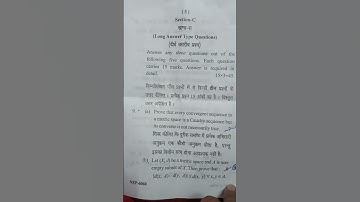 ( 3 )
Section-C
खण्ड-स
(Long Answer Type Questions)
(दीर्घ उत्तरीय प्रश्न)
Answer any three questions out of the
following five questions. Each question
carries 15 marks. Answer is required in
detail. 15×3=45
निम्नलिखित पाँच प्रश्नों में से किन्हीं तीन प्रश्नों के
उत्तर दीजिए। प्रत्येक प्रश्न 15 अंकों का है। विस्तृत
उत्तर अपेक्षित है।
(a) Prove that every convergent sequence in
a metric space is a Cauchy sequence but
its converse is not necessarily true.
सिद्ध कीजिए कि दूरीक समष्टि में प्रत्येक अभिसारी
अनुक्रम एक कौशी अनुक्रम होता है, परन्तु
इसका विलोम सत्य होना आवश्यक नहीं है।
(b) Let (X, d) be a metric space and A is non-
empty subset of X. Then prove that:
NEP-6068